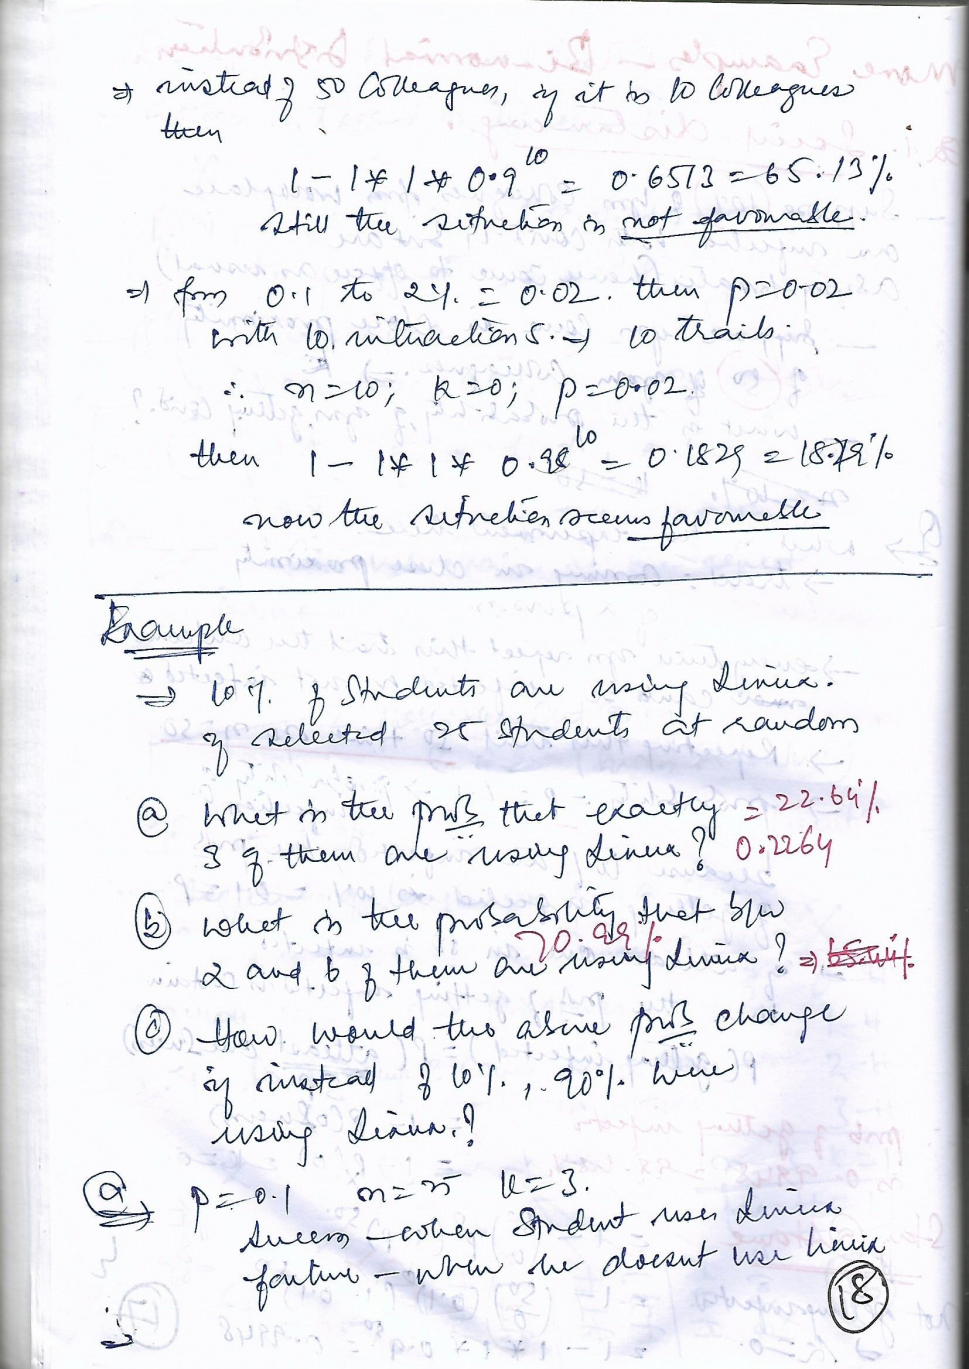 ⇒ instead of 50 Colleagues, if it is 10 Colleagues
then
1 - 1 * 1 * 0.9^10 = 0.6513 = 65.13%
still the situation is not favourable.
⇒ from 0.1 to 2% = 0.02. then p=0.02
with 10 interactions. ⇒ 10 trails.
∴ n=10; k=0; p=0.02.
then 1 - 1 * 1 * 0.98^10 = 0.1829 = 18.29%
now the situation seems favourable
Example
⇒ 10% of Students are using Linux.
if selected 25 Students at random
(a) What is the prob that exactly = 22.64%
3 of them are using Linux? 0.2264
(b) What is the probability that b/w
70.99%
2 and 6 of them are using Linux? ⇒
(c) How would the above prob change
if instead of 10%, 90% were
using Linux.?
(a) p=0.1 n=25 k=3.
Success - when Student uses Linux
failure - when he doesnt use Linux
⇒
18